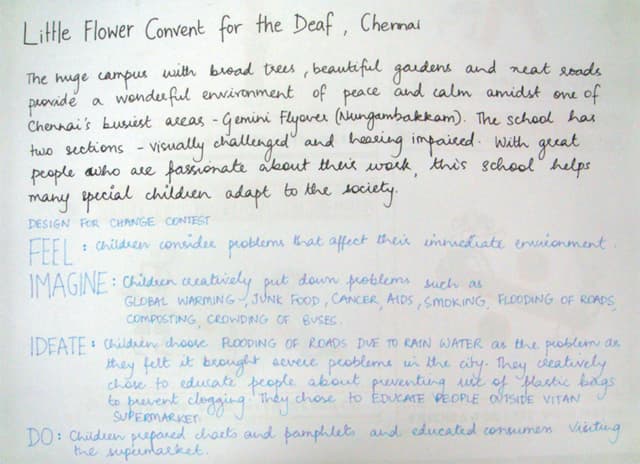 Little Flower Convent for the Deaf, Chennai
The huge campus with broad trees, beautiful gardens and neat roads
provide a wonderful environment of peace and calm amidst one of
Chennai's busiest areas - Gemini Flyover (Nungambakkam). The school has
two sections - visually challenged and hearing impaired. With great
people who are passionate about their work, this school helps
many special children adapt to the society.
DESIGN FOR CHANGE CONTEST
FEEL : Children consider problems that affect their immediate environment.
IMAGINE : Children creatively put down problems such as
GLOBAL WARMING, JUNK FOOD, CANCER, AIDS, SMOKING, FLOODING OF ROADS,
COMPOSTING, CROWDING OF BUSES.
IDEATE : Children choose FLOODING OF ROADS DUE TO RAIN WATER as the problem as
they felt it brought severe problems in the city. They creatively
chose to educate people about preventing use of plastic bags
to prevent clogging. They chose to EDUCATE PEOPLE OUTSIDE VITAN
SUPERMARKET.
DO : Children prepared charts and pamphlets and educated consumers visiting
the supermarket.